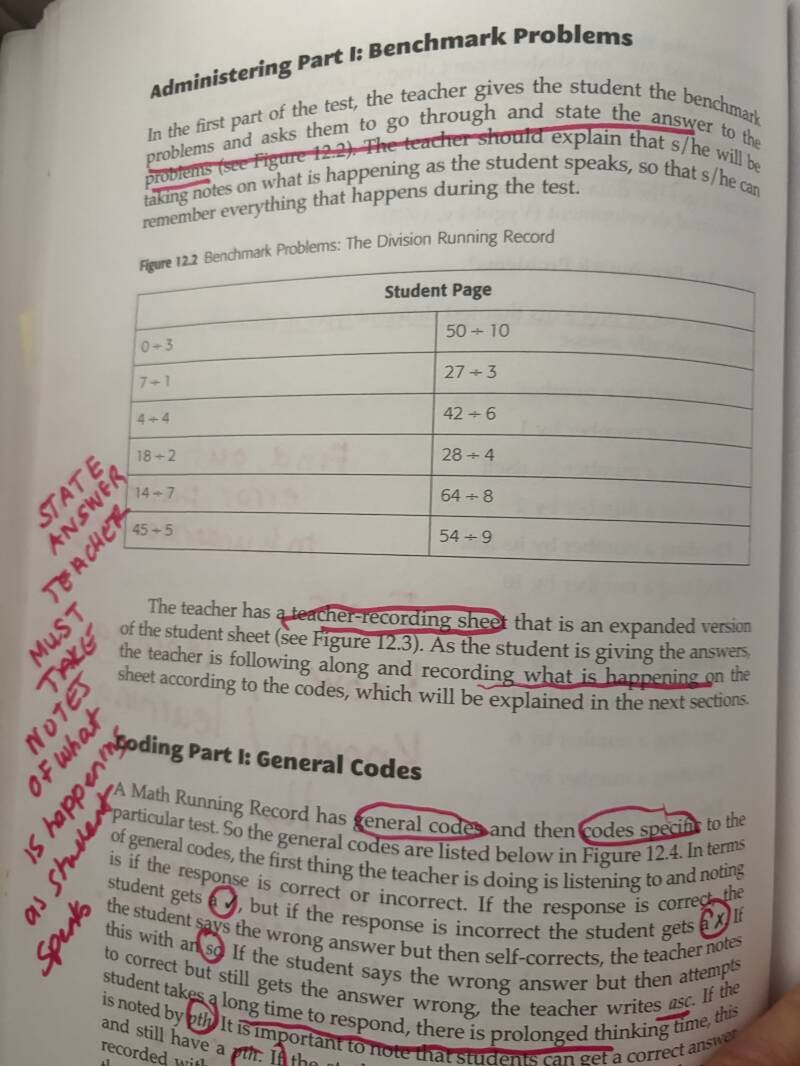 Administering Part I: Benchmark Problems
In the first part of the test, the teacher gives the student the benchmark
problems and asks them to go through and state the answer to the
problems (see Figure 12.2). The teacher should explain that s/he will be
taking notes on what is happening as the student speaks, so that s/he can
remember everything that happens during the test.
Figure 12.2 Benchmark Problems: The Division Running Record
Student Page
0 ÷ 3 50 ÷ 10
7 ÷ 1 27 ÷ 3
4 ÷ 4 42 ÷ 6
18 ÷ 2 28 ÷ 4
14 ÷ 7 64 ÷ 8
45 ÷ 5 54 ÷ 9
STATE
ANSWER
TEACHER
MUST
TAKE
NOTES
OF what
is happening
as student
speaks
The teacher has a teacher-recording sheet that is an expanded version
of the student sheet (see Figure 12.3). As the student is giving the answers,
the teacher is following along and recording what is happening on the
sheet according to the codes, which will be explained in the next sections.
Coding Part I: General Codes
A Math Running Record has general codes and then codes specific to the
particular test. So the general codes are listed below in Figure 12.4. In terms
of general codes, the first thing the teacher is doing is listening to and noting
is if the response is correct or incorrect. If the response is correct, the
student gets a ✓, but if the response is incorrect the student gets a x. If
the student says the wrong answer but then self-corrects, the teacher notes
this with an sc. If the student says the wrong answer but then attempts
to correct but still gets the answer wrong, the teacher writes asc. If the
student takes a long time to respond, there is prolonged thinking time, this
is noted by pth. It is important to note that students can get a correct answer
and still have a pth. If the
recorded with